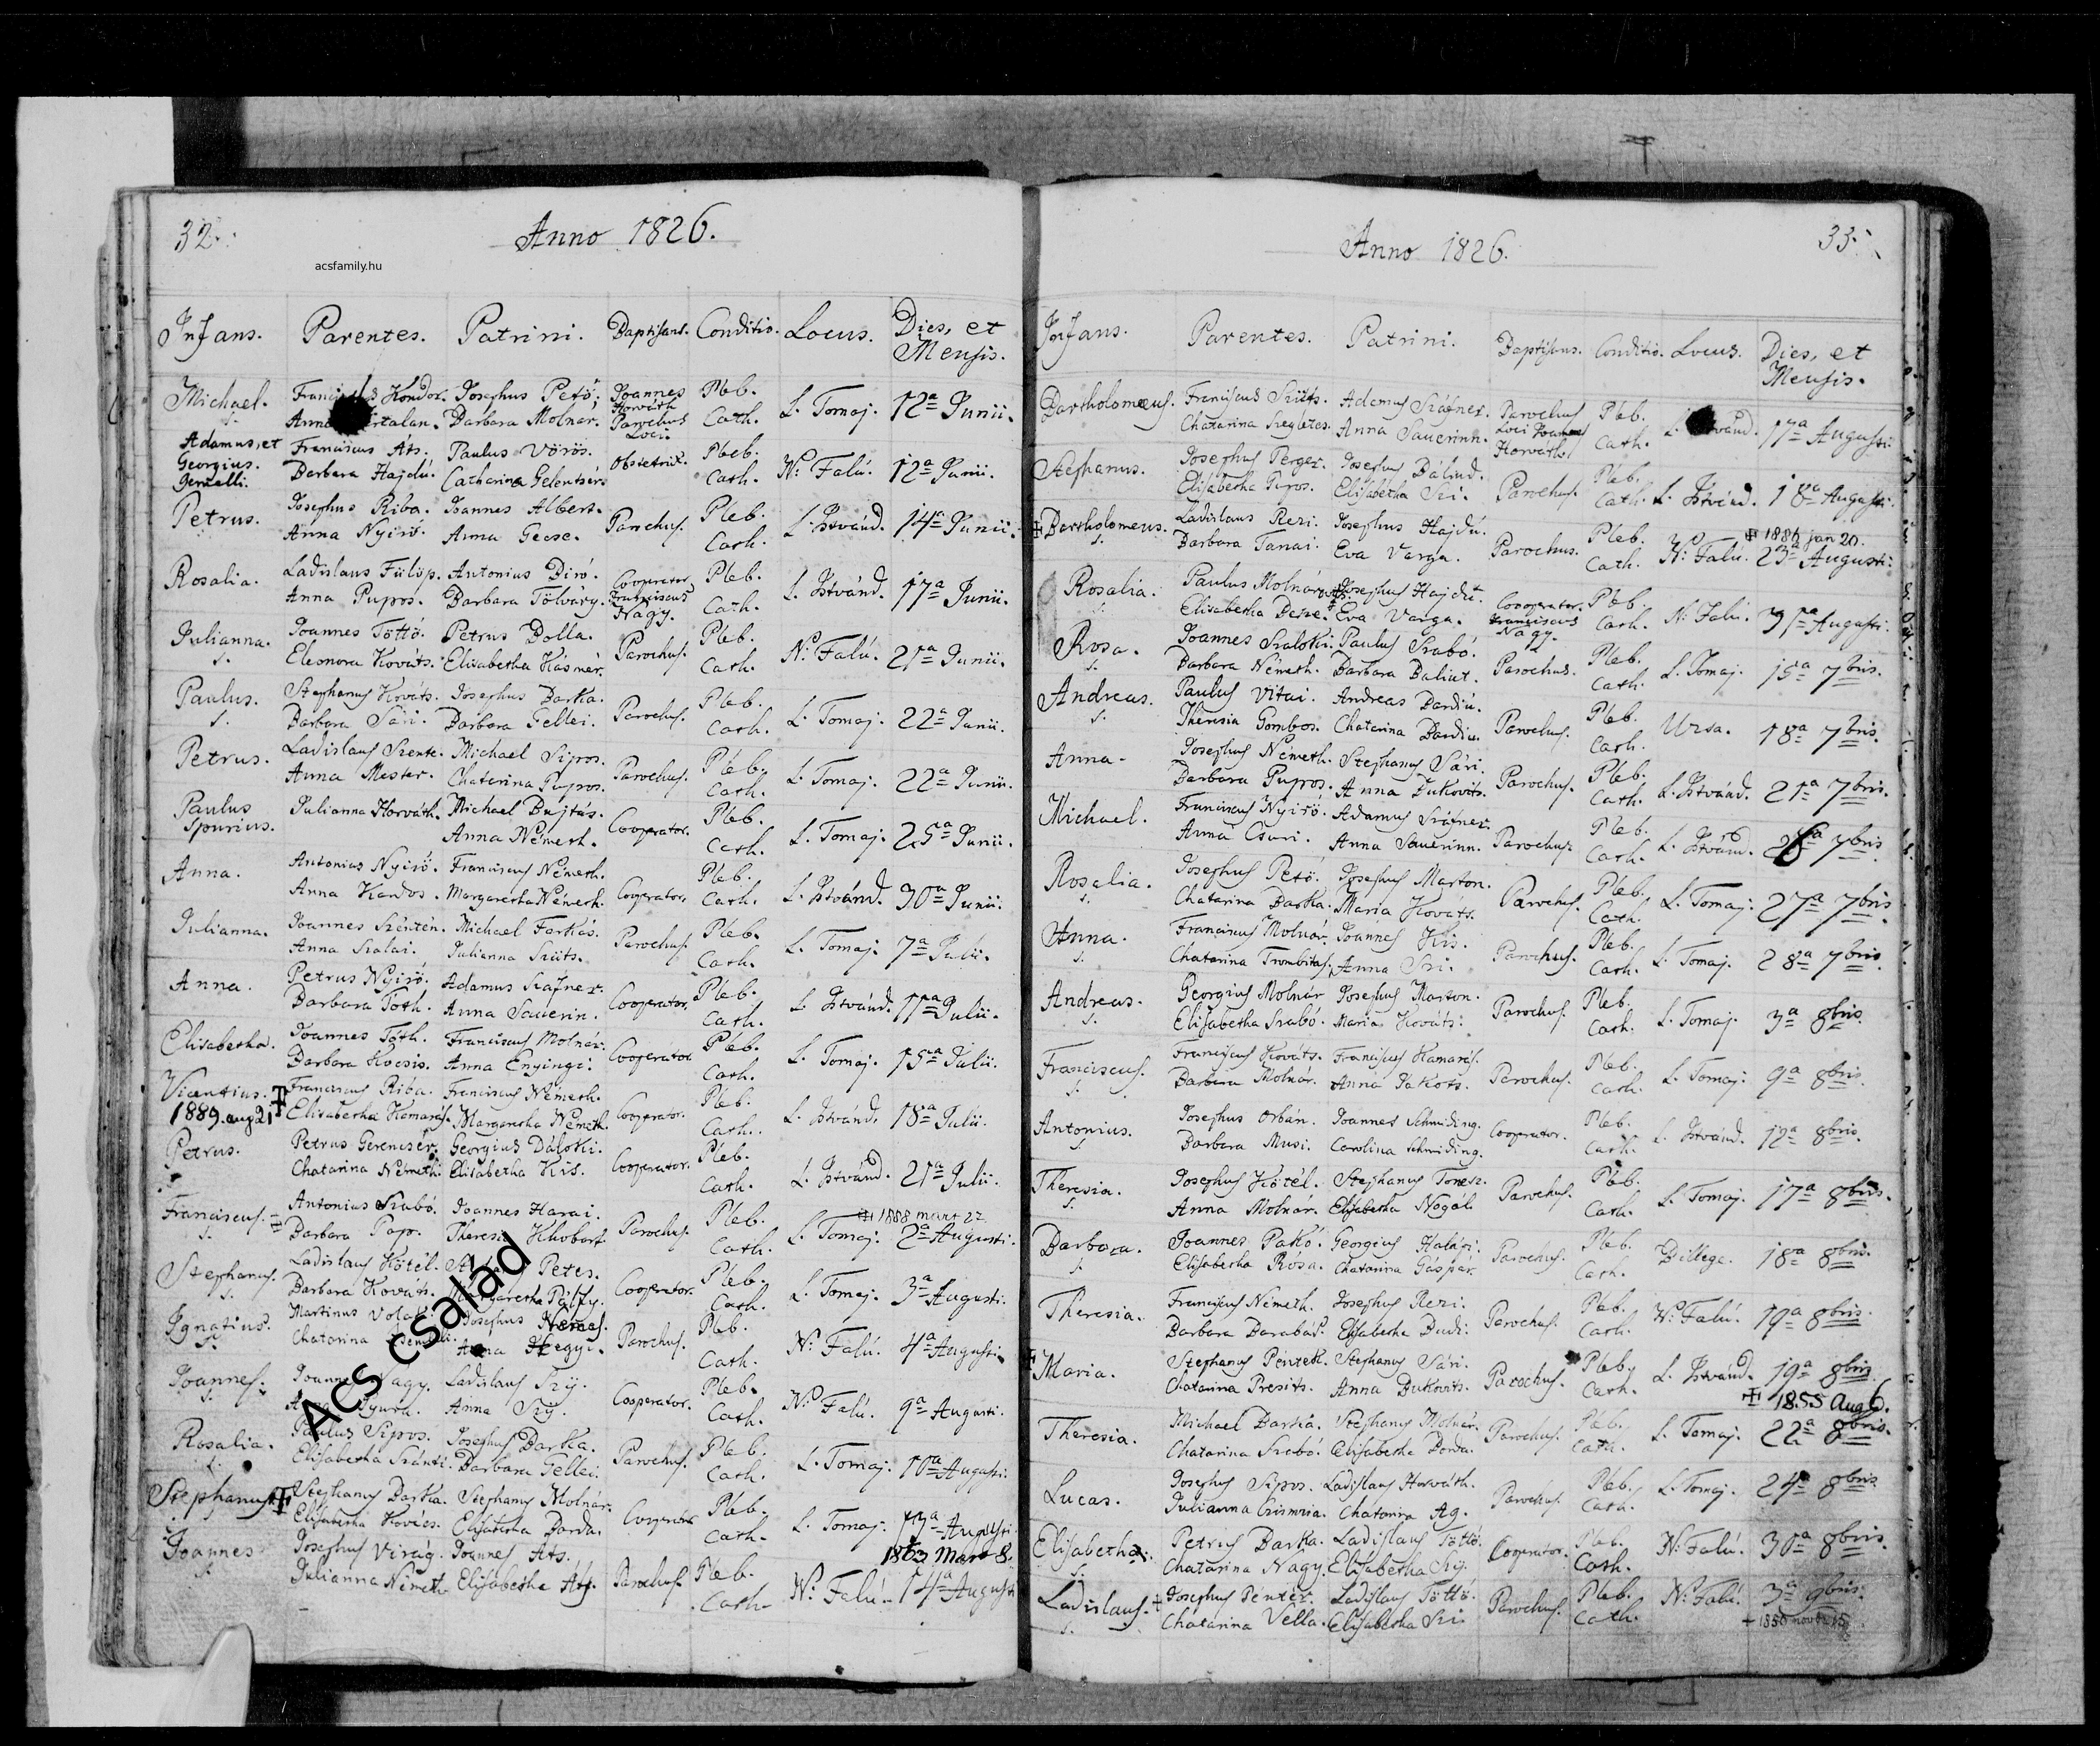 32.
Anno 1826.
acsfamily.hu
Infans. Parentes. Patrini. Baptisans. Conditio. Locus. Dies, et
Mensis.
Michael. Franciscus Kondor. Josephus Pető. Joannes Pleb.
Horváth
s. Anna Barbara Molnár. Parochus Cath. L. Tomaj. 12a Junii.
Loci
Adamus, et Franciscus Áts. Paulus Vörös. Obstetrix. Pleb.
Georgius. Barbara Hajdú. Catharina Gelentsér. Cath. N. Falú. 12a Junii.
Gemelli.
Petrus. Josephus Riba. Joannes Albert. Parochus. Pleb. L. Istvánd. 14a Junii.
Anna Nyirő. Anna Gecse. Cath.
Rosalia. Ladislaus Fülöp. Antonius Biró. Cooperator Pleb. L. Istvánd. 17a Junii.
Anna Pupos. Barbara Tölváry. Franciscus Cath.
Nagy.
Julianna. Joannes Töttő. Petrus Dolla. Parochus. Pleb. N. Falú. 21a Junii.
s. Eleonora Kováts. Elisabetha Kásnár. Cath.
Paulus. Stephanus Kováts. Josephus Barka. Parochus. Pleb. L. Tomaj. 22a Junii.
s. Barbara Sári. Barbara Gellei. Cath.
Petrus. Ladislaus Szente. Michael Sipos. Parochus. Pleb. L. Tomaj. 22a Junii.
Anna Mester. Chatarina Pupos. Cath.
Paulus Julianna Horváth. Michael Bujtás. Cooperator. Pleb. L. Tomaj. 25a Junii.
Spurius. Anna Németh. Cath.
Anna. Antonius Nyirő. Franciscus Németh. Cooperator. Pleb. L. Istvánd. 30a Junii.
Anna Kardos. Margaretha Németh. Cath.
Julianna. Joannes Szentén. Michael Farkás. Parochus. Pleb. L. Tomaj. 7a Julii.
Anna Szalai. Julianna Szüts. Cath.
Anna. Petrus Nyirő. Adamus Száfner. Cooperator. Pleb. L. Istvánd. 11a Julii.
Barbara Toth. Anna Sauerin. Cath.
Elisabetha. Joannes Tóth. Franciscus Molnár. Cooperator Pleb. L. Tomaj. 15a Julii.
Barbara Kocsis. Anna Enyingi. Cath.
Vicentius. Franciscus Riba. Franciscus Németh. Cooperator. Pleb. L. Istvánd. 18a Julii.
1889. aug 21 Elisabetha Kamarás. Margaretha Németh. Cath.
Petrus. Petrus Gerencsér. Georgius Dáloki. Cooperator. Pleb. L. Istvánd. 21a Julii.
Chatarina Németh. Elisabetha Kis. Cath.
1888 mart 27
Franciscus. Antonius Szabó. Joannes Harai. Parochus. Pleb. L. Tomaj. 2a Augusti.
s. Barbara Papp. Theresia Khobart. Cath.
Stephanus. Ladislaus Kötél. Petes. Cooperator. Pleb. L. Tomaj. 3a Augusti.
s. Barbara Kováts. Margaretha Pálffy. Cath.
Ignatius. Martinus Josephus Nemes. Parochus. Pleb. N. Falú. 4a Augusti.
s. Chatarina Anna Hegyi. Cath.
Joannes. Joannes Nagy. Ladislaus Szij. Cooperator. Pleb. N. Falú. 9a Augusti.
s. Anna Gyura. Anna Szij. Cath.
Rosalia. Paulus Sipos. Josephus Barka. Parochus. Pleb. L. Tomaj. 10a Augusti.
s. Elisabetha Szánti. Barbara Gellei. Cath.
Stephanus Stephanus Barka. Stephanus Molnár. Cooperator Pleb. L. Tomaj. 13a Augusti.
Elisabetha Kovács. Elisabetha Dorda. Cath.
1863 Mart 8.
Joannes Josephus Virág. Joannes Áts. Parochus. Pleb. N. Falú. 14a Augusti
s. Julianna Németh Elisabetha Áts. Cath.
Ács család
33.
Anno 1826.
Infans. Parentes. Patrini. Baptisans. Conditio. Locus. Dies, et
Mensis.
Bartholomæus. Franciscus Szüts. Adamus Száfner. Parochus Pleb. L. Istvánd. 17a Augusti
Chatarina Szegletes. Anna Sauerinn. Loci Joannes Cath.
Horváth
Stephanus. Josephus Perger. Josephus Bálind. Parochus. Pleb. L. Istvánd. 18a Augusti.
Elisabetha Pupos. Elisabetha Szi. Cath.
1886 jan 20.
Bartholomeus. Ladislaus Rezi. Josephus Hajdú. Parochus. Pleb. N. Falú. 23a Augusti.
s. Barbara Tanai. Eva Varga. Cath.
Rosalia. Paulus Molnár Josephus Hajdú. Cooperator. Pleb. N. Falú. 31a Augusti.
s. Elisabetha Eva Varga. Franciscus Cath.
Nagy.
Rosa. Joannes Szaloki. Paulus Szabó. Parochus. Pleb. L. Tomaj. 15a 7bris.
s. Barbara Németh. Barbara Balint. Cath.
Andreas. Paulus Vitai. Andreas Bardiu. Parochus. Pleb. Ursa. 18a 7bris.
s. Theresia Gombos. Chatarina Bardiu. Cath.
Anna. Josephus Németh. Stephanus Sári. Parochus. Pleb. L. Istvánd. 21a 7bris.
Barbara Pupos. Anna Dukovits. Cath.
Michael. Franciscus Nyirő. Adamus Száfner. Parochus Pleb. L. Istvánd. 26a 7bris
Anna Csuri. Anna Sauerinn. Cath.
Rosalia. Josephus Pető. Josephus Marton. Parochus. Pleb. L. Tomaj. 27a 7bris
s. Chatarina Barka. Maria Kováts. Cath.
Anna. Franciscus Molnár. Joannes Kis. Parochus. Pleb. L. Tomaj. 28a 7bris.
s. Chatarina Trombitás. Anna Szi. Cath.
Andreas. Georgius Molnár Josephus Marton. Parochus. Pleb. L. Tomaj. 3a 8bris.
s. Elisabetha Szabó. Maria Kováts. Cath.
Franciscus. Franciscus Kováts. Franciscus Kamarás. Parochus. Pleb. L. Tomaj. 9a 8bris.
s. Barbara Molnár. Anna Takots. Cath.
Antonius. Josephus Orbán. Joannes Schmiding. Cooperator. Pleb. L. Istvánd. 12a 8bris.
s. Barbara Musi. Carolina Schmiding. Cath.
Theresia. Josephus Kötél. Stephanus Parochus. Pleb. L. Tomaj. 17a 8bris.
Anna Molnár. Elisabetha Nogáli Cath.
Barbara. Joannes Pakó. Georgius Halápi. Parochus. Pleb. Billege. 18a 8bris.
s. Elisabetha Rósa. Chatarina Gáspár. Cath.
Theresia. Franciscus Németh. Josephus Rezi. Parochus. Pleb. N. Falú. 19a 8bris.
Barbara Barabás. Elisabetha Dudi. Cath.
Maria. Stephanus Péntek. Stephanus Sári. Parochus. Pleb. L. Istvánd. 19a 8bris.
Chatarina Presits. Anna Dukovits. Cath.
1855 Aug 6.
Theresia. Michael Barka. Stephanus Molnár. Parochus. Pleb. L. Tomaj. 22a 8bris.
Chatarina Szabó. Elisabetha Dorda. Cath.
Lucas. Josephus Sipos. Ladislaus Horváth. Parochus. Pleb. L. Tomaj. 24a 8bris
Julianna Chatarina Ag. Cath.
Elisabetha. Petrus Barka. Ladislaus Töttő. Cooperator. Pleb. N. Falú. 30a 8bris.
s. Chatarina Nagy. Elisabetha Szij. Cath.
Ladislaus. Josephus Péntek. Ladislaus Töttő. Parochus. Pleb. N. Falú. 3a 9bris.
s. Chatarina Vella. Elisabetha Szi. Cath.